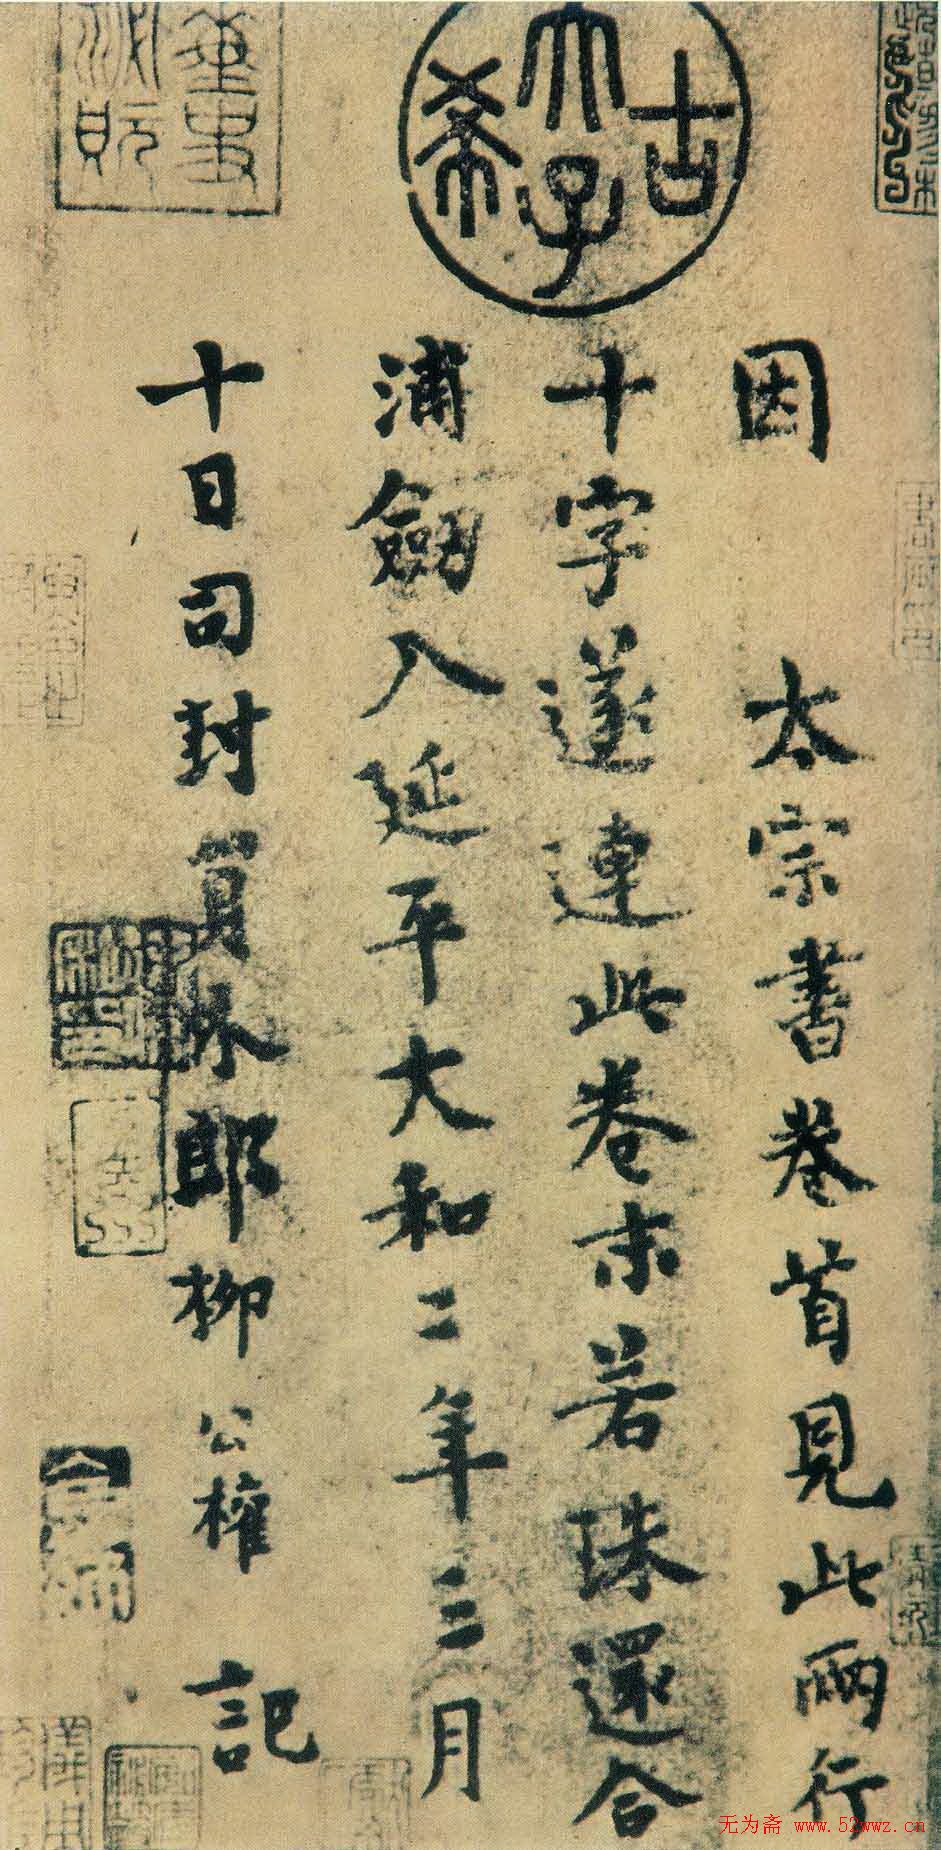 古
希
天子
因 太宗書卷首見此兩行
十字遂連此卷末若珠還合
浦劔入延平大和二年三月
十日司封員外郎柳公權 記
无为斋 www.52wwz.cn